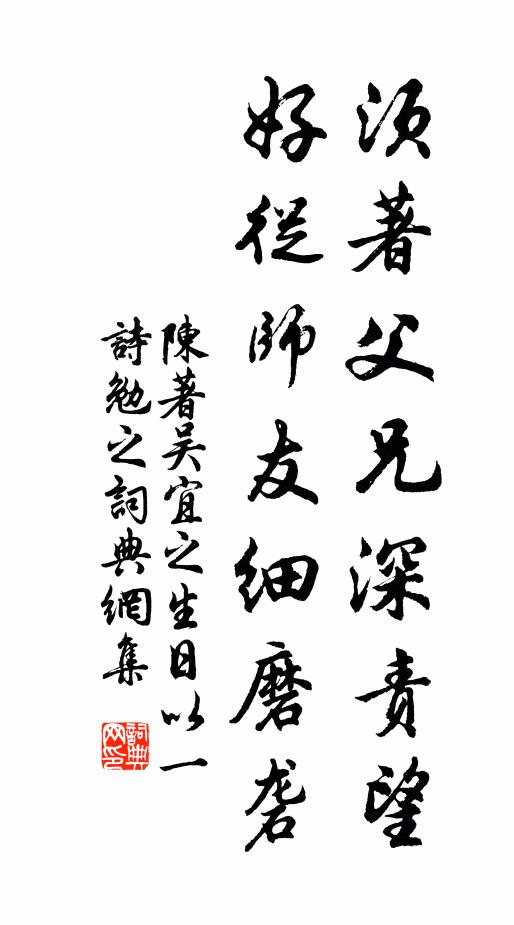 須著父兄深責望
好從師友細磨礲
陳著吴宜之生日以一
詩勉之詞典網集
詞典
网印